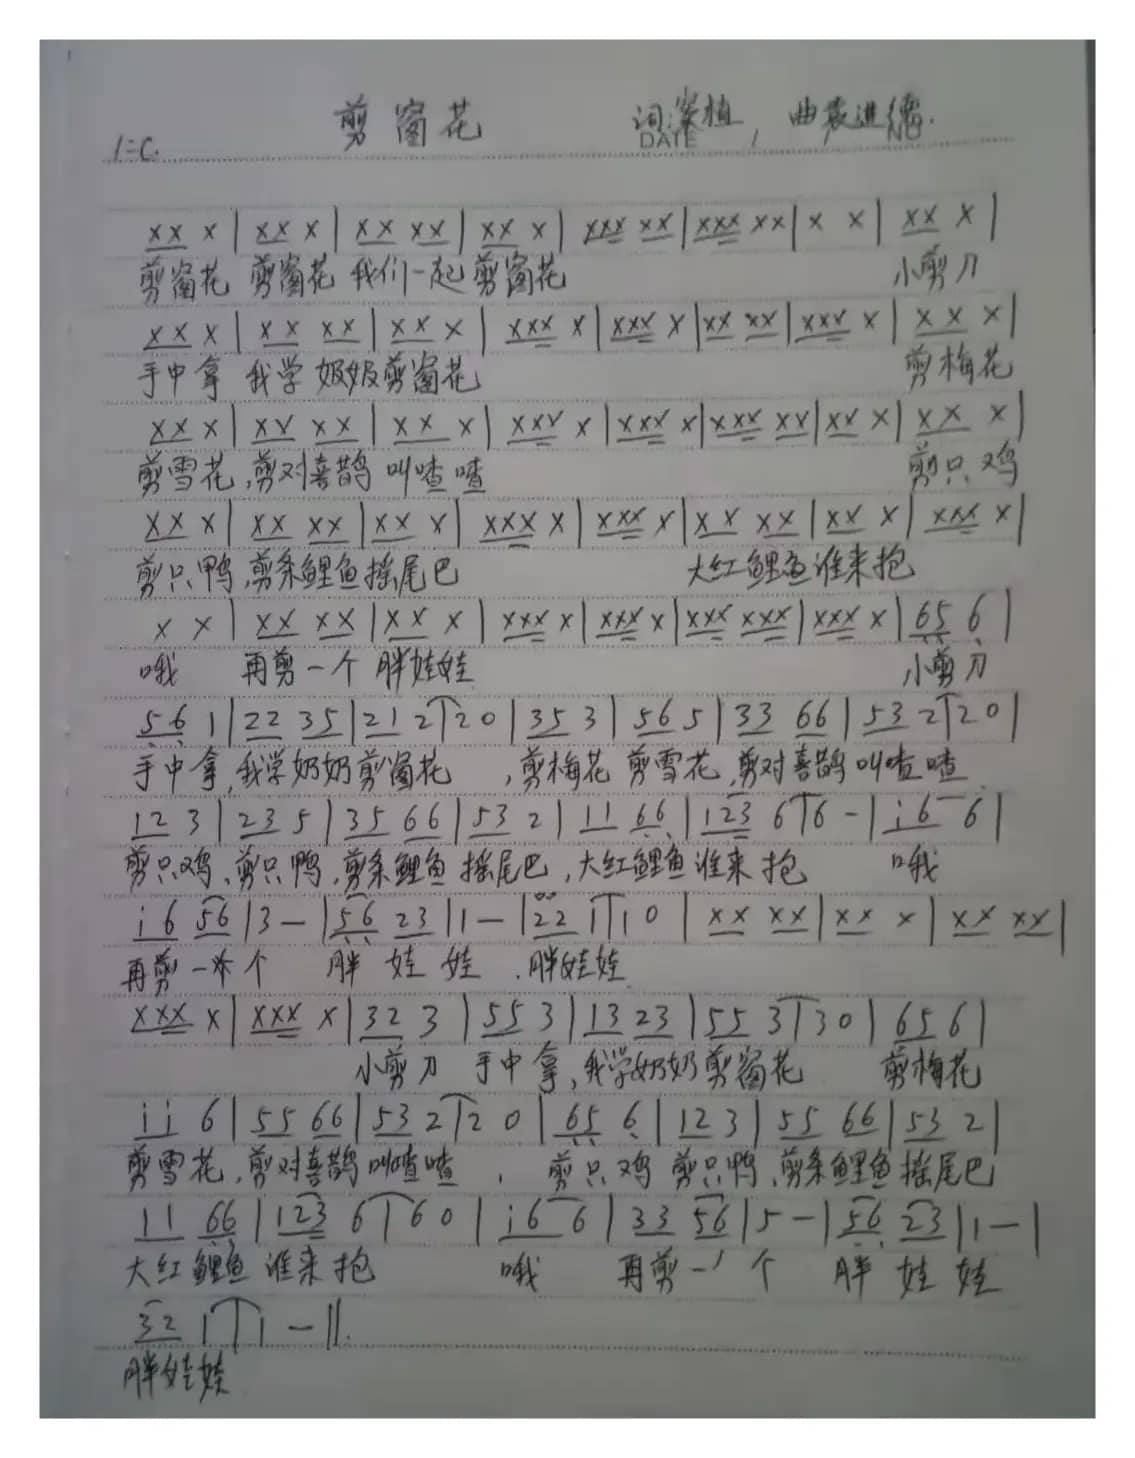 剪窗花 词:案植, 曲袁进德.
DATE
1=C.
xx x | xx x | xx xx | xx x | xxx xx | xxx xx | x x | xx x |
剪窗花 剪窗花 我们一起 剪窗花 小剪刀
xx x | xx xx | xx x | xxx x | xxx x | xx xx | xxx x | xx x |
手中拿 我学 奶奶剪窗花 剪梅花
xx x | xx xx | xx x | xxx x | xxx x | xxx xx | xx x | xx x |
剪雪花,剪对喜鹊 叫喳喳 剪只鸡
xx x | xx xx | xx x | xxx x | xxx x | xx xx | xx x | xxx x |
剪只鸭,剪条鲤鱼摇尾巴 大红鲤鱼谁来抱
x x | xx xx | xx x | xxx x | xxx x | xxx xxx | xxx x | 65 6 |
哦 再剪一个 胖娃娃 小剪刀
56 1 | 22 35 | 21 2 | 20 | 35 3 | 56 5 | 33 66 | 53 2 | 20 |
手中拿,我学奶奶剪窗花 ,剪梅花 剪雪花,剪对喜鹊 叫喳喳
12 3 | 23 5 | 35 66 | 53 2 | 11 66 | 123 6 | 6 - | i6 6 |
剪只鸡、剪只鸭、剪条鲤鱼 摇尾巴,大红鲤鱼谁来抱 哦
i6 56 | 3 - | 56 23 | 1 - | 22 1 | 1 0 | xx xx | xx x | xx xx |
再剪一个 胖 娃 娃 .胖娃娃
xxx x | xxx x | 32 3 | 55 3 | 13 23 | 55 3 | 30 | 65 6 |
小剪刀 手中拿,我学奶奶剪窗花 剪梅花
ii 6 | 55 66 | 53 2 | 2 0 | 65 6 | 12 3 | 55 66 | 53 2 |
剪雪花,剪对喜鹊叫喳喳 , 剪只鸡 剪只鸭,剪条鲤鱼摇尾巴
11 66 | 123 6 | 60 | i6 6 | 33 56 | 5 - | 56 23 | 1 - |
大红鲤鱼 谁来抱 哦 再剪一个 胖 娃 娃
32 1 | 1 - ‖.
胖娃娃